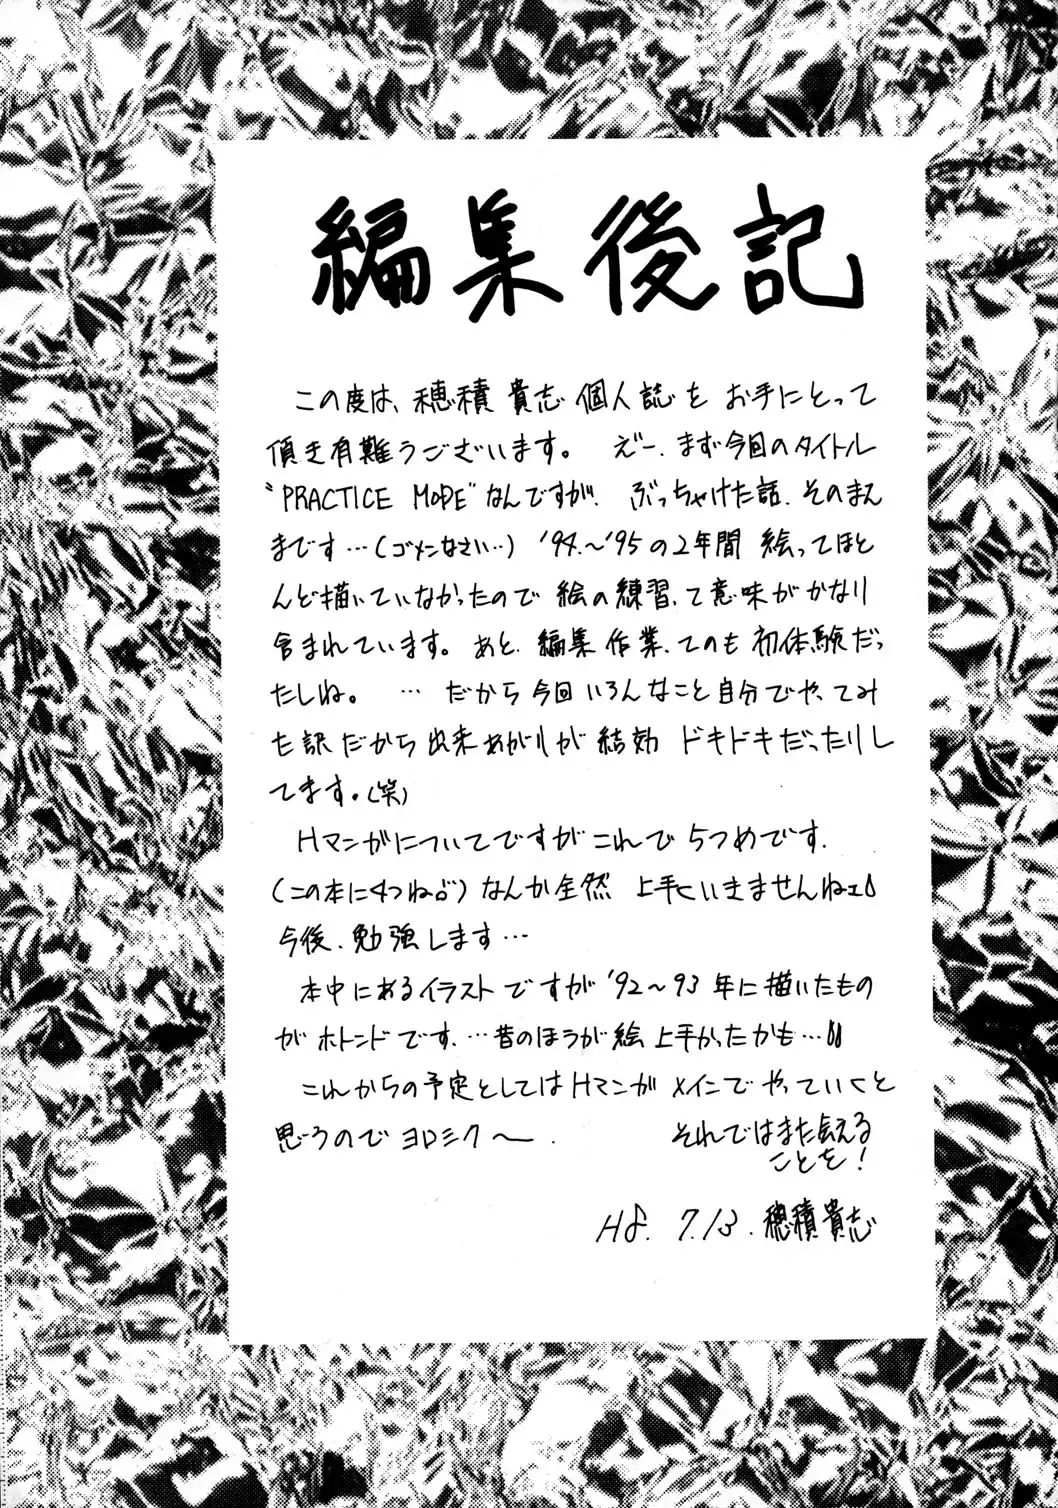 編集後記
この度は、穂積貴志個人誌をお手にとって
頂き有難うございます。 えー、まず今回のタイトル
“PRACTICE MODE”なんですが、ぶっちゃけた話、そのまん
まです…(ゴメンなさい…) '94.～'95の2年間 絵ってほと
んど描いていなかったので絵の練習って意味がかなり
含まれています。あと、編集作業ってのも初体験だっ
たしね。 … だから今回いろんなこと自分でやってみ
た訳だから出来あがりが結効ドキドキだったりし
てます。(笑)
Hマンガについてですがこれで5つめです.
(この本に4つね) なんか全然 上手くいきませんねェ
今後、勉強します…
本中にあるイラストですが'92～93年に描いたもの
がホトンドです.…昔のほうが絵上手かったかも…
これからの予定としてはHマンガメインでやっていくと
思うのでヨロシク～.
それではまた会える
ことを!
H8. 7.13. 穂積貴志